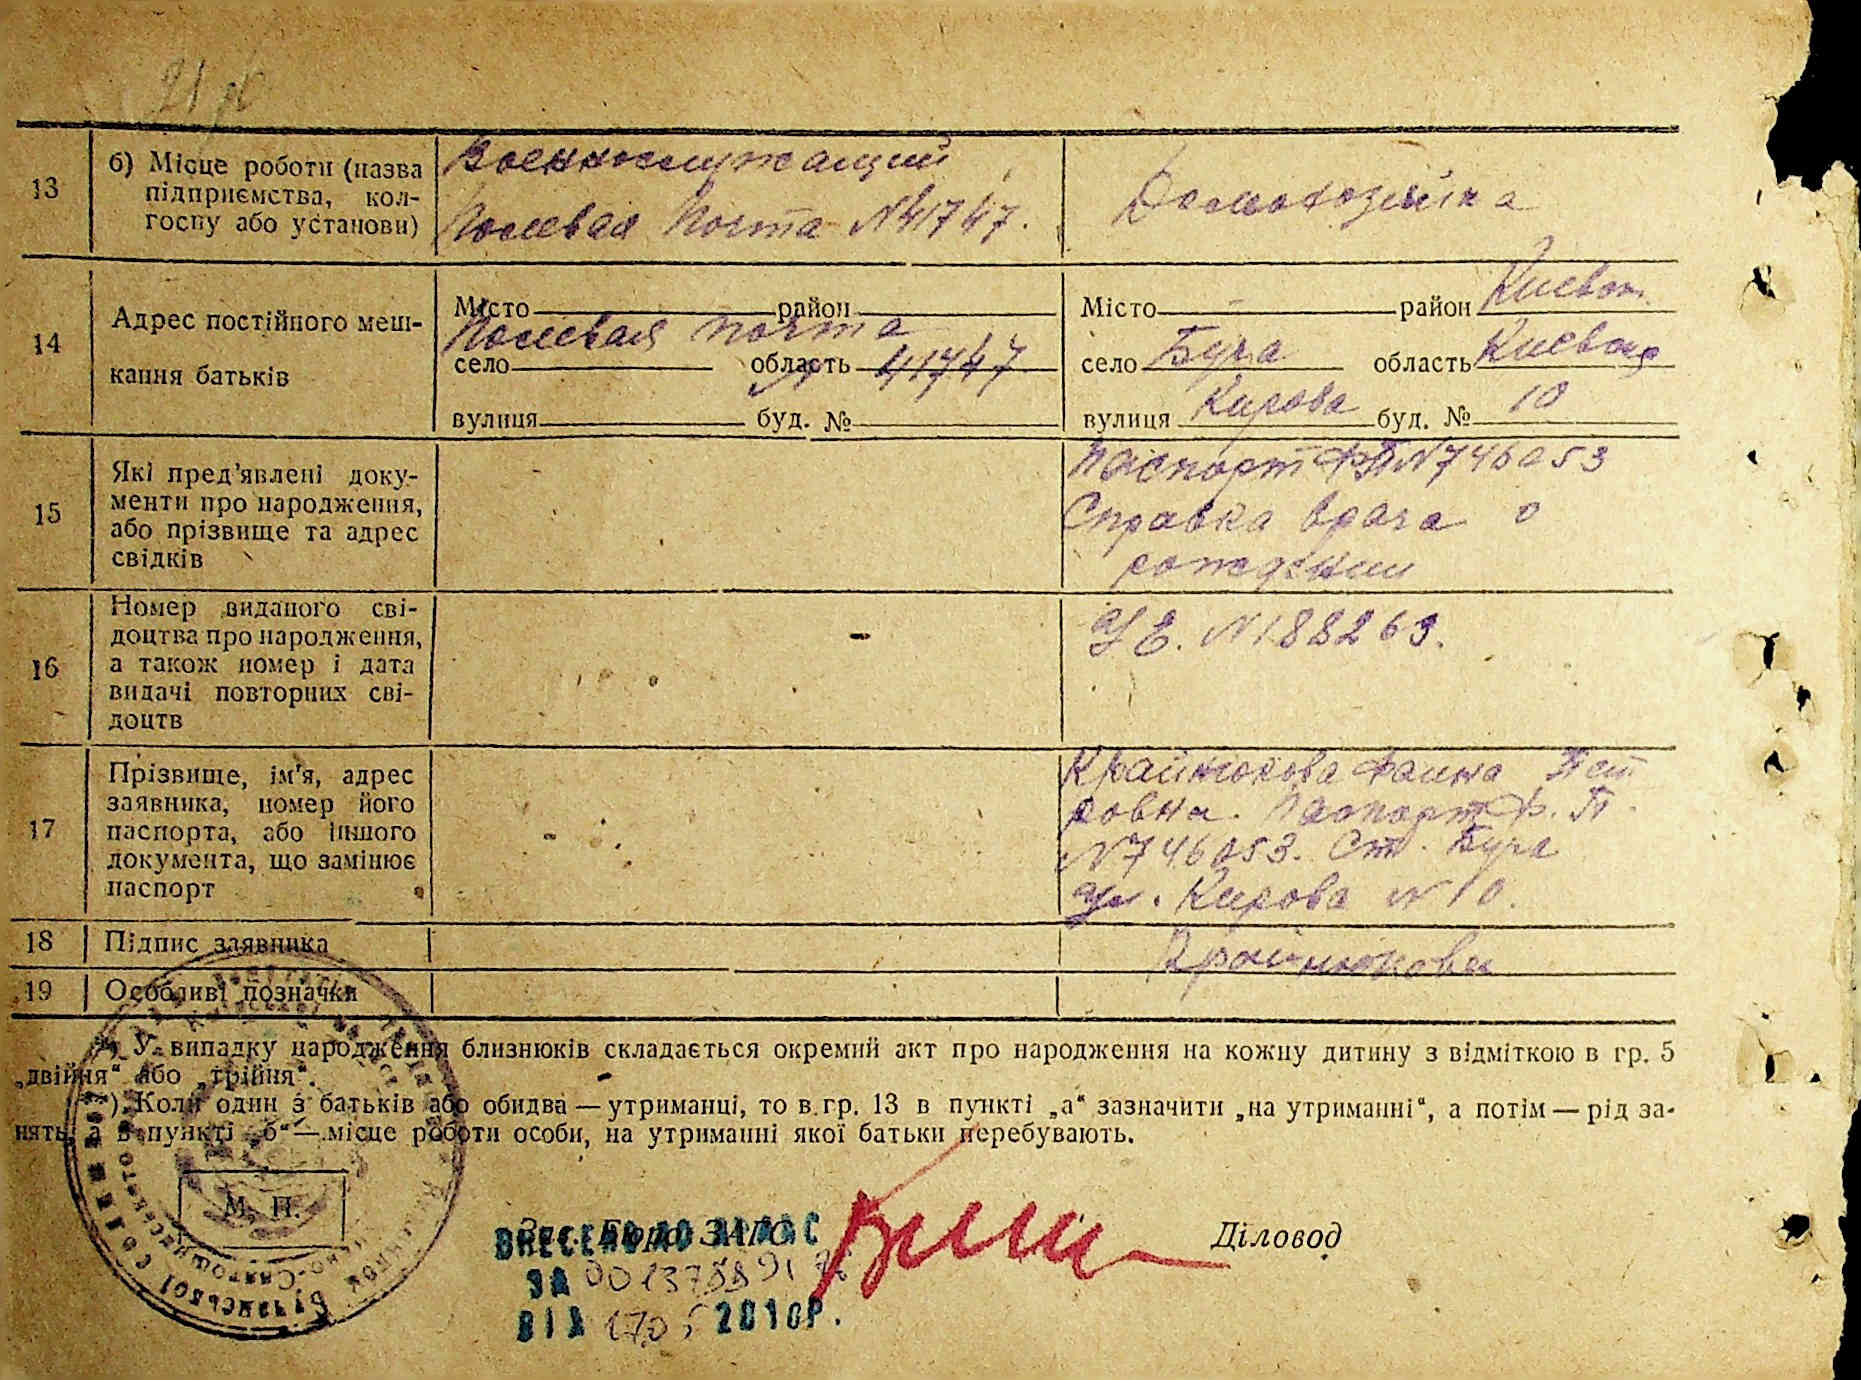 13
б) Місце роботи (назва
підприємства, кол-
госпу або установи)
Военнослужащий
Полевая Почта N41747.
Домохозяйка
14
Адрес постійного меш-
кання батьків
Місто район
Полевая почта
село область N 41747
вулиця буд. №
Місто район Киевск.
село Буча область Киевская
вулиця Кирова буд. № 10
15
Які пред'явлені доку-
менти про народження,
або прізвище та адрес
свідків
Паспорт ФП N746053
Справка врача о
рождении
16
Номер виданого сві-
доцтва про народження,
а також номер і дата
видачі повторних сві-
доцтв
УЕ. N188263.
17
Прізвище, ім'я, адрес
заявника, номер його
паспорта, або іншого
документа, що замінює
паспорт
Крайнюкова Фаина Пет
ровна. Паспорт Ф. П.
N746053. Ст. Буча
ул. Кирова N 10.
18
Підпис заявника
Крайнюкова
19
Особливі позначки
*) У випадку народження близнюків складається окремий акт про народження на кожну дитину з відміткою в гр. 5
„двійня“ або „трійня“.
**) Коли один з батьків або обидва — утриманці, то в гр. 13 в пункті „а“ зазначити „на утриманні“, а потім — рід за-
нять, а в пункті „б“ — місце роботи особи, на утриманні якої батьки перебувають.
М. П.
Зав. Бюро ЗАГС
Діловод
ВНЕСЕНО ДО
ЗА 00137889172
ВІД 2010Р.